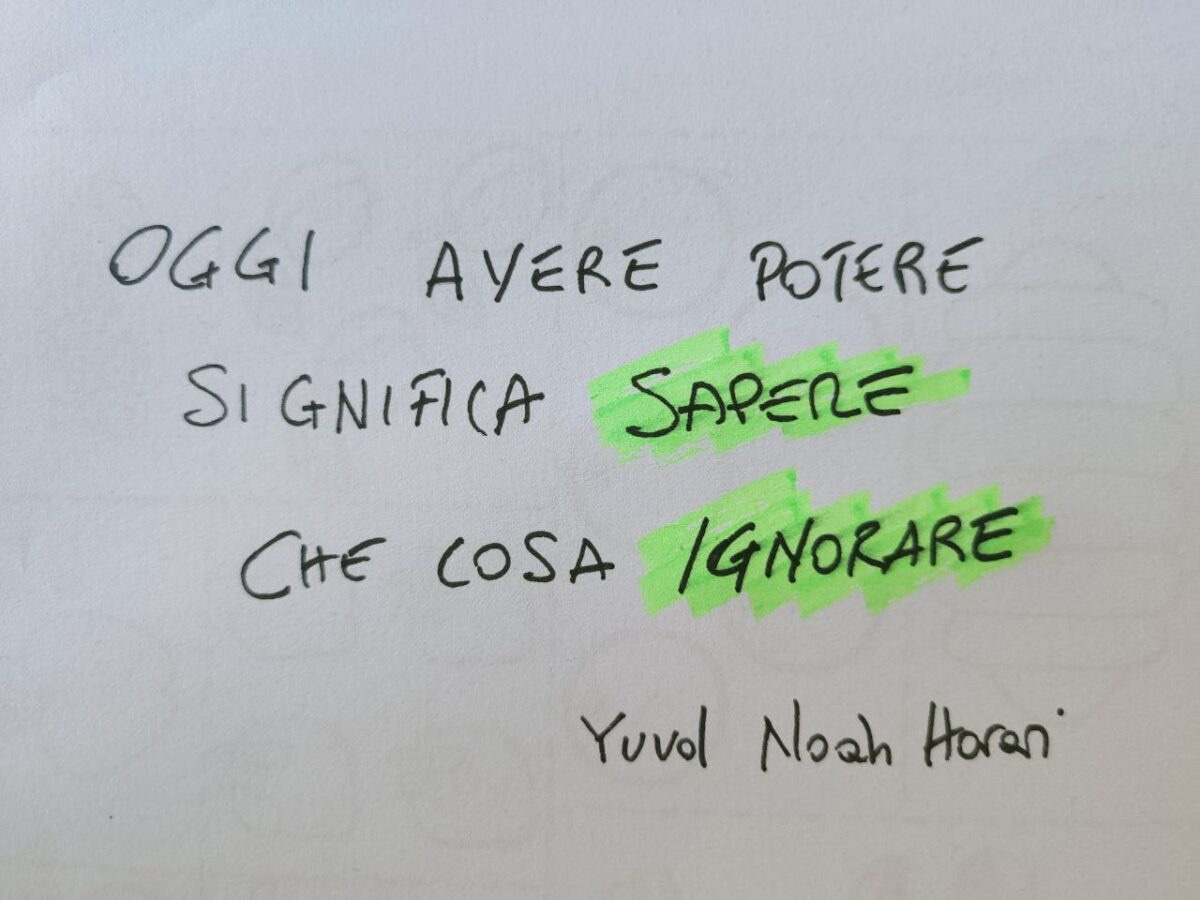 OGGI AVERE POTERE
SIGNIFICA SAPERE
CHE COSA IGNORARE
Yuval Noah Harari